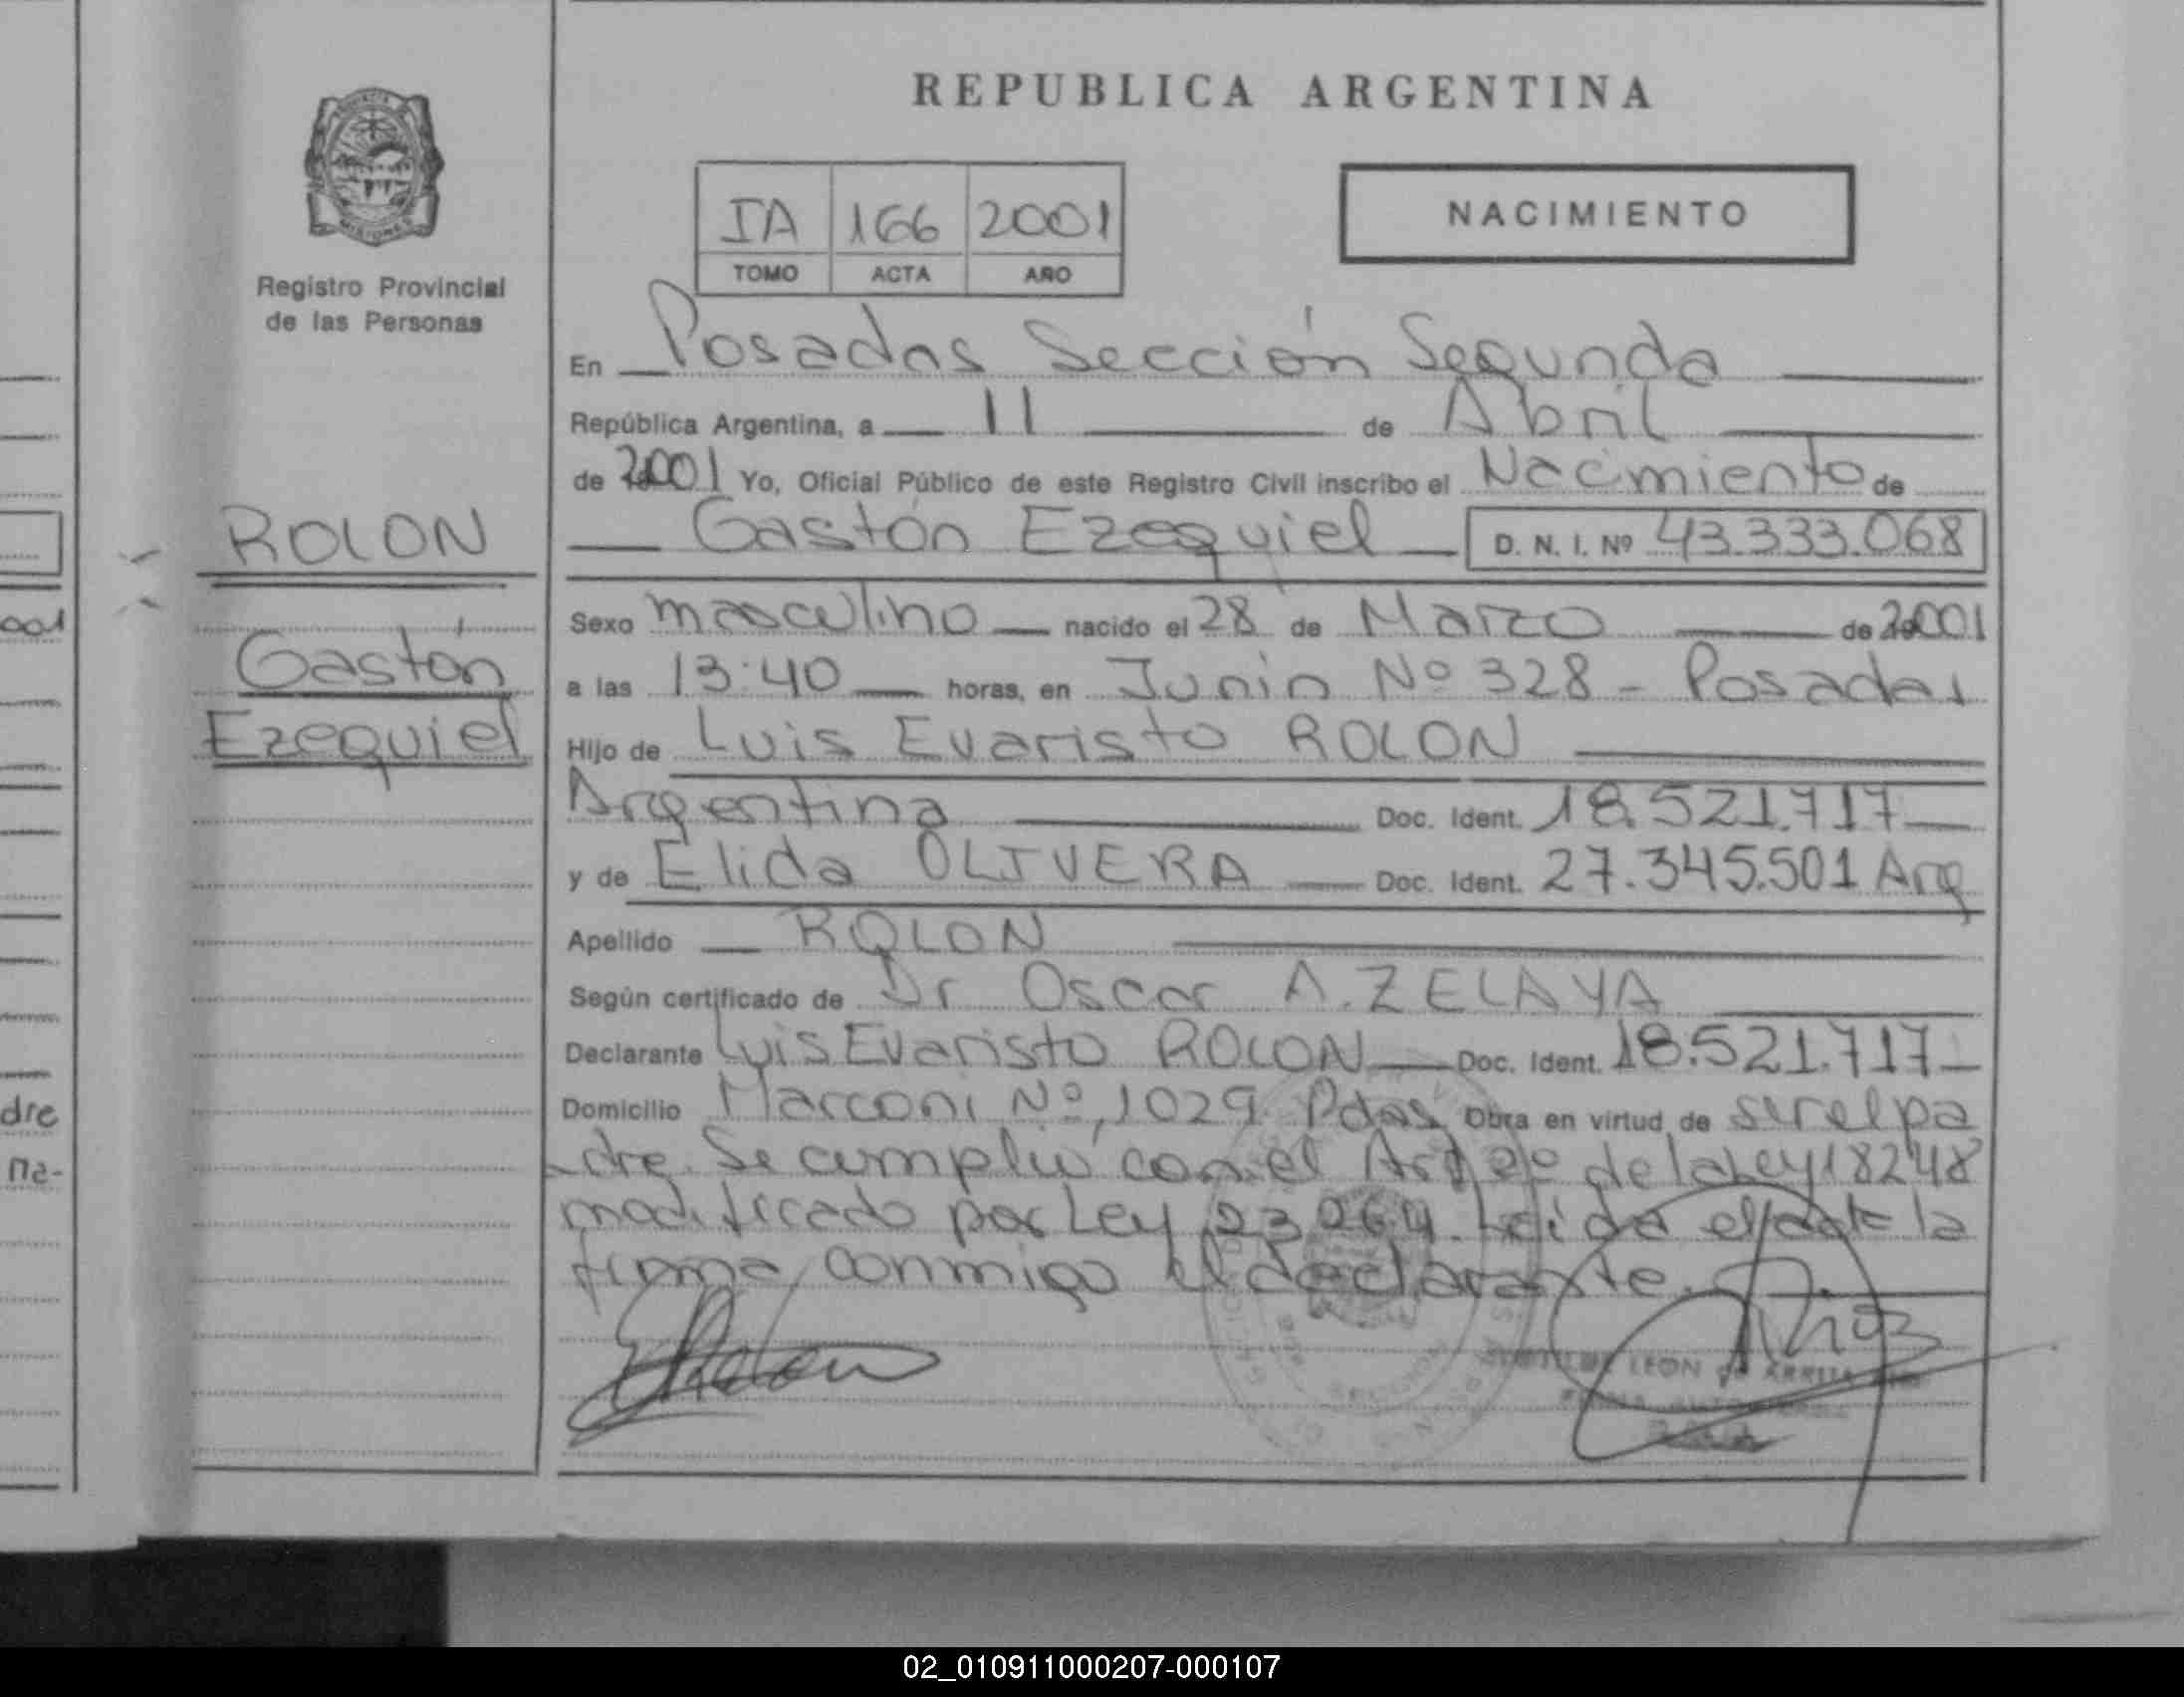 REPUBLICA ARGENTINA
IA 166 2001
TOMO ACTA AÑO
NACIMIENTO
MISIONES
Registro Provincial
de las Personas
ROLON
Gastón
Ezequiel
En Posadas Sección Segunda
República Argentina, a 11 de Abril
de 2001 Yo, Oficial Público de este Registro Civil inscribo el Nacimiento de
Gastón Ezequiel D. N. I. Nº 43.333.068
Sexo masculino nacido el 28 de Marzo de 2001
a las 13:40 horas, en Junin Nº 328 - Posadas
Hijo de Luis Evaristo ROLON
Argentina Doc. Ident. 18.521.717
y de Elida OLIVERA Doc. Ident. 27.345.501 Arg
Apellido ROLON
Según certificado de Dr Oscar A. ZELAYA
Declarante Luis Evaristo ROLON Doc. Ident. 18.521.717
Domicilio Marconi Nº 1029 Pdas Obra en virtud de ser el pa
dre. Se cumplió con el Art 2º de la Ley 18248
modificado por Ley 23.264. Leida el acta la
firma conmigo el declarante.
Rolon
LEON DE
001
dre
na-
02_010911000207-000107